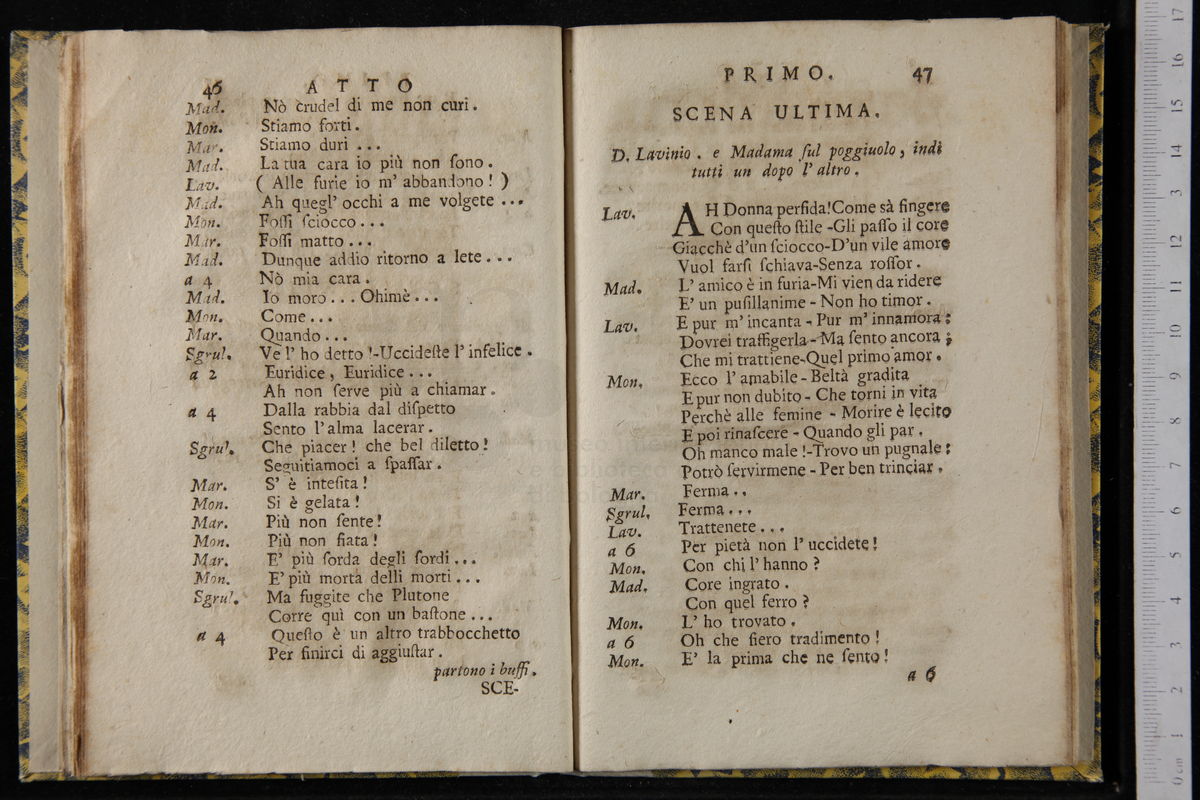 46 ATTO
Mad. Nò crudel di me non curi.
Mon. Stiamo forti.
Mar. Stiamo duri ...
Mad. La tua cara io più non ſono.
Lav. ( Alle furie io m' abbandono! )
Mad. Ah quegl' occhi a me volgete ...
Mon. Foſſi ſciocco ...
Mar. Foſſi matto ...
Mad. Dunque addio ritorno a lete ...
a 4 Nò mia cara.
Mad. Io moro ... Ohimè ...
Mon. Come ...
Mar. Quando ...
Sgrul. Ve l' ho detto !-Uccideſte l' infelice.
a 2 Euridice, Euridice ...
Ah non ſerve più a chiamar.
a 4 Dalla rabbia dal diſpetto
Sento l'alma lacerar.
Sgrul. Che piacer! che bel diletto!
Seguitiamoci a ſpaſſar.
Mar. S' è inteſita!
Mon. Si è gelata!
Mar. Più non ſente!
Mon. Più non fiata!
Mar. E' più ſorda degli ſordi ...
Mon. E' più morta delli morti ...
Sgrul. Ma fuggite che Plutone
Corre quì con un baſtone ...
a 4 Queſto è un altro trabbocchetto
Per finirci di aggiuſtar.
partono i buffi.
SCE-
PRIMO. 47
SCENA ULTIMA.
D. Lavinio. e Madama ſul poggiuolo, indi
tutti un dopo l' altro.
Lav. AH Donna perfida!Come sà fingere
Con queſto ſtile -Gli paſſo il core
Giacchè d'un ſciocco-D'un vile amore
Vuol farſi ſchiava-Senza roſſor.
Mad. L' amico è in furia-Mi vien da ridere
E' un puſillanime - Non ho timor.
Lav. E pur m' incanta - Pur m' innamora:
Dovrei traffigerla-Ma ſento ancora;
Che mi trattiene-Quel primo amor.
Mon. Ecco l' amabile - Beltà gradita
E pur non dubito - Che torni in vita
Perchè alle femine - Morire è lecito
E poi rinaſcere - Quando gli par.
Oh manco male !-Trovo un pugnale:
Potrò ſervirmene - Per ben trinciar.
Mar. Ferma ..
Sgrul. Ferma ...
Lav. Trattenete ...
a 6 Per pietà non l' uccidete!
Mon. Con chi l' hanno?
Mad. Core ingrato.
Con quel ferro?
Mon. L' ho trovato.
a 6 Oh che fiero tradimento!
Mon. E' la prima che ne ſento!
a 6